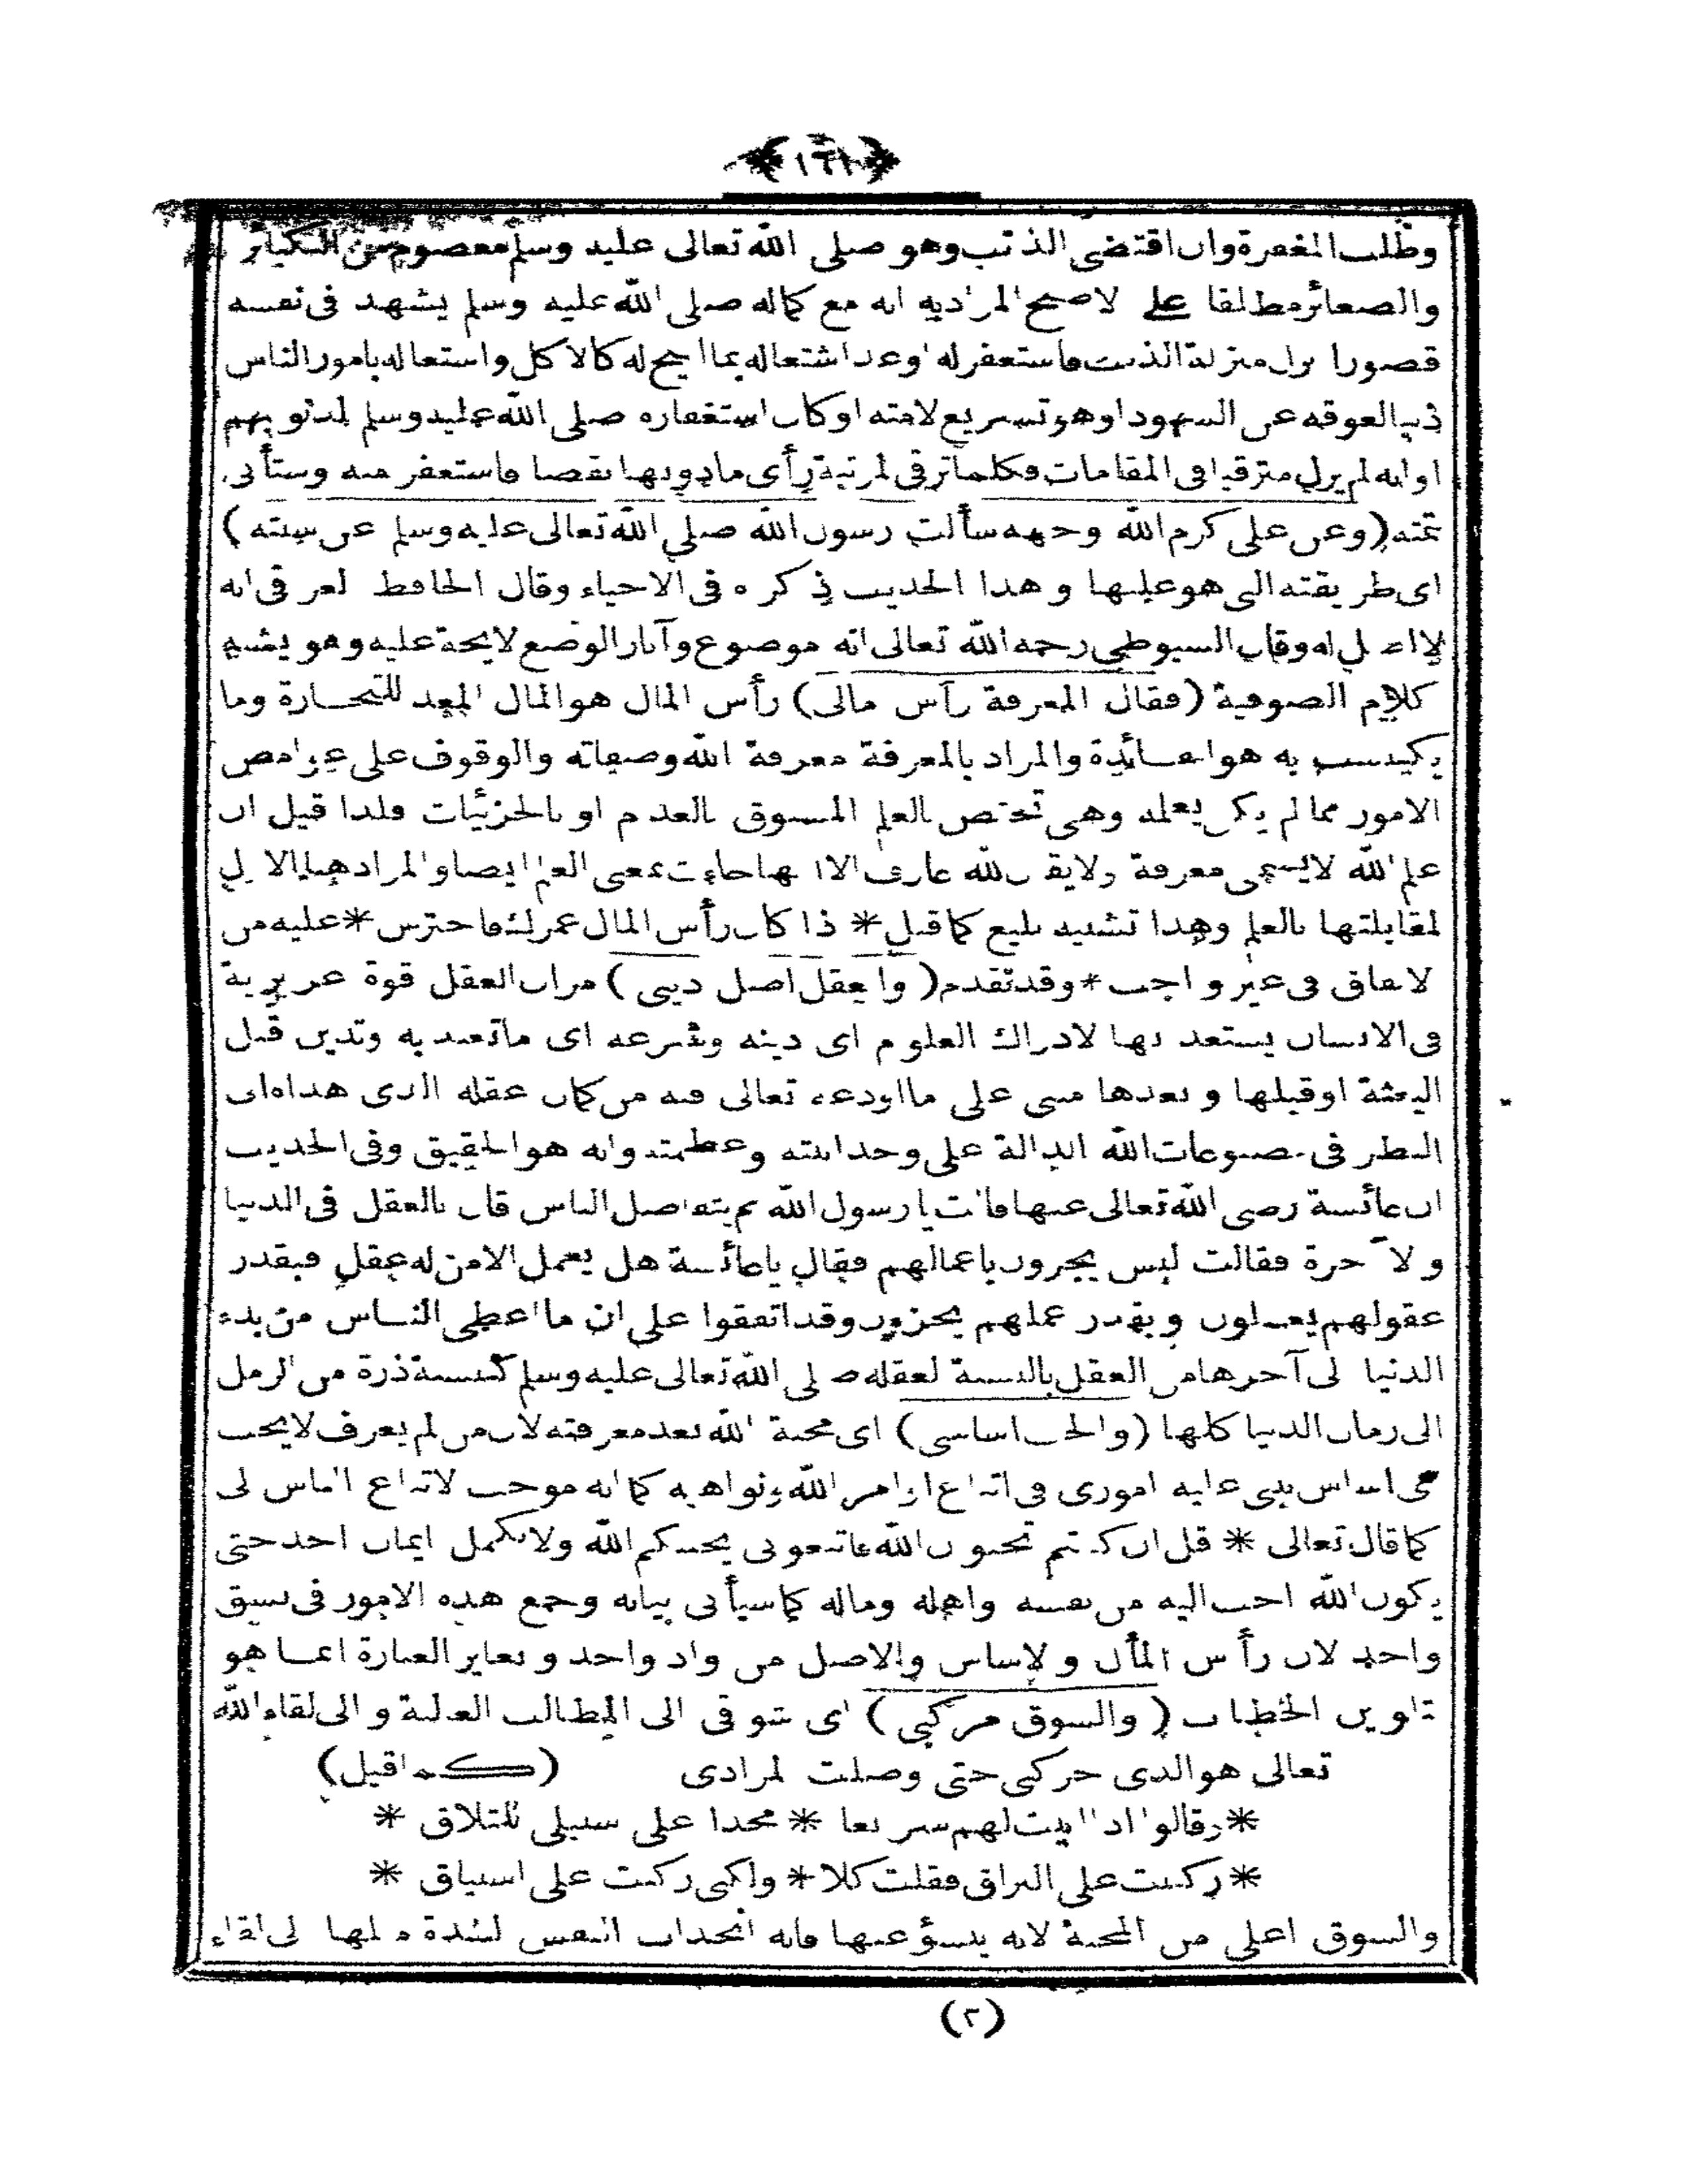 ﴿١٦١﴾
وطلب المغفرة وان اقتضى الذنب وهو صلى الله تعالى عليه وسلم معصوم من الكبائر
والصغائر مطلقا على الاصح المراد به انه مع كماله صلى الله عليه وسلم يشهد فى نفسه
قصورا نزل منزلة الذنب فاستغفر له او عد اشتغاله بما ابيح له كالاكل واشتغاله بامور الناس
ذنبا لعوقه عن الشهود او هو تشريع لامته او كان استغفاره صلى الله عليه وسلم لذنوبهم
او انه لم يزل مترقيا فى المقامات فكلما ترقى لمرتبة رأى مادونها نقصا فاستغفر منه وستأتى
تتمته (وعن على كرم الله وجهه سألت رسول الله صلى الله تعالى عليه وسلم عن سنته)
اى طريقته التى هو عليها وهذا الحديث ذكره فى الاحياء وقال الحافظ العراقى انه
لا اصل له وقال السيوطى رحمه الله تعالى انه موضوع وآثار الوضع لايحة عليه وهو يشبه
كلام الصوفية (فقال المعرفة رأس مالى) رأس المال هو المال المعد للتجارة وما
يكتسب به هو الفائدة والمراد بالمعرفة معرفة الله وصفاته والوقوف على غوامض
الامور مما لم يكن يعلمه وهى تختص بالعلم المسبوق بالعدم او بالجزئيات فلذا قيل ان
علم الله لايسمى معرفة ولايقال لله عارف الا انها جاءت بمعنى العلم ايضا والمراد هنا الاول
لمقابلتها بالعلم وهذا تشبيه بليغ كما قيل * اذا كان رأس المال عمرك فاحترس * عليه من
الانفاق فى غير واجب * وقد تقدم (والعقل اصل دينى) مر ان العقل قوة غريزية
فى الانسان يستعد بها لادراك العلوم اى دينه وشرعه اى ماتعبد به وتدين قبل
البعثة او قبلها وبعدها مبنى على ما اودعه تعالى فيه من كمال عقله الذى هداه الى
النظر فى مصنوعات الله الدالة على وحدانيته وعظمته وانه هو الحقيق وفى الحديث
ان عائشة رضى الله تعالى عنها قالت يا رسول الله بم يتفاضل الناس قال بالعقل فى الدنيا
والآخرة فقالت اليس يجزون باعمالهم فقال ياعائشة هل يعمل الا من له عقل فبقدر
عقولهم يعملون وبقدر عملهم يجزون وقد اتفقوا على ان ما اعطى الناس من بدء
الدنيا الى آخرها من العقل بالنسبة لعقله صلى الله تعالى عليه وسلم كنسبة ذرة من الرمل
الى رمال الدنيا كلها (والحب اساسى) اى محبة الله بعد معرفته لان من لم يعرف لايحب
فهى اساس بنى عليه امورى فى اتباع اوامر الله ونواهيه كما انه موجب لاتباع الناس لى
كما قال تعالى * قل ان كنتم تحبون الله فاتبعونى يحببكم الله ولا يكمل ايمان احد حتى
يكون الله احب اليه من نفسه واهله وماله كما سيأتى بيانه وجمع هذه الامور فى نسق
واحد لان رأس المال والاساس والاصل من واد واحد وتغاير العبارة انما هو
تلوين الخطاب (والشوق مركبى) اى شوقى الى المطالب العلية والى لقاء الله
تعالى هو الذى حركنى حتى وصلت لمرادى (كما قيل)
* وقالوا اذ اتيت لهم سريعا * مجدا على سبيلى للتلاق *
* ركبت على البراق فقلت كلا * ولكنى ركبت على اشتياق *
والشوق اعلى من المحبة لانه ينشؤ عنها فانه انجذاب النفس لشدة ميلها الى لقاء
(٣)